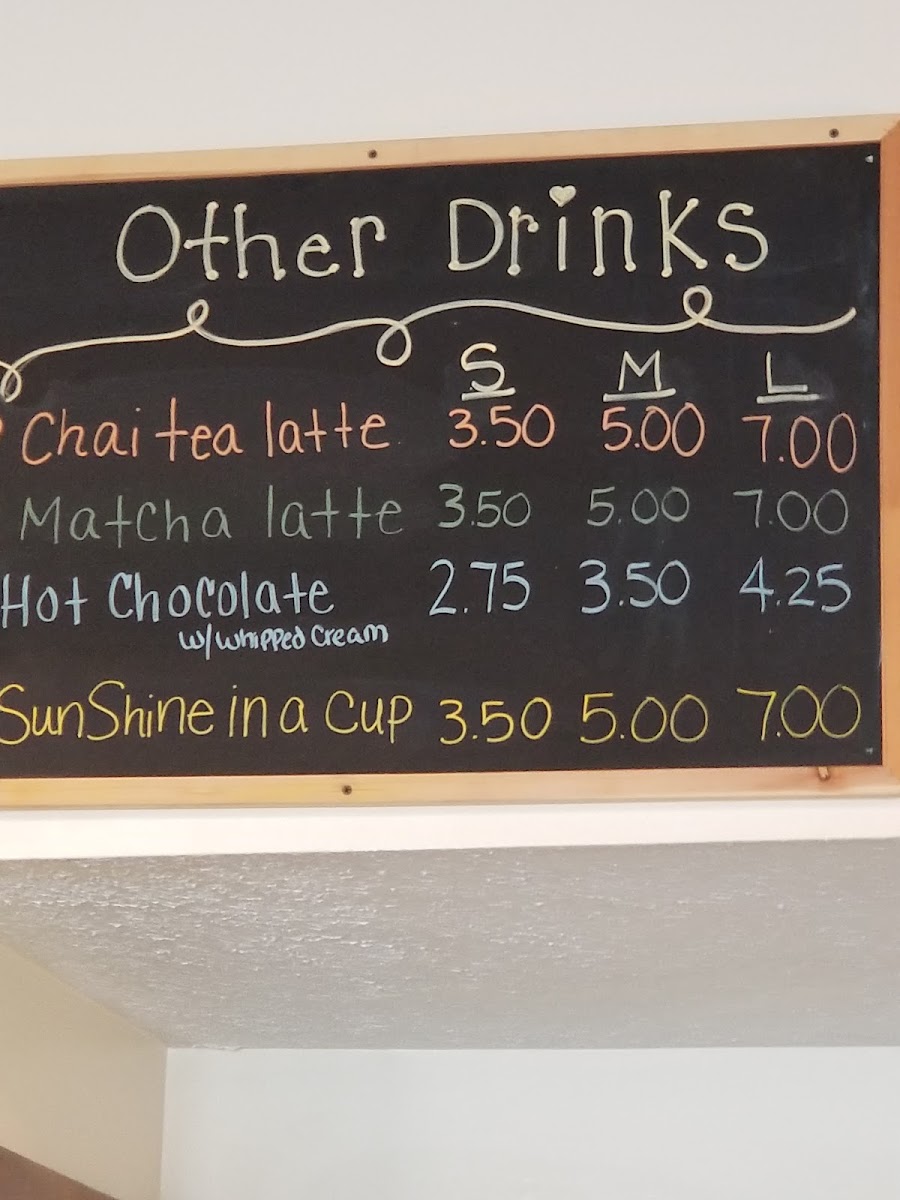 Other Drinks
S M L
Chai tea latte 3.50 5.00 7.00
Matcha latte 3.50 5.00 7.00
Hot Chocolate 2.75 3.50 4.25
w/ whipped Cream
SunShine in a Cup 3.50 5.00 7.00